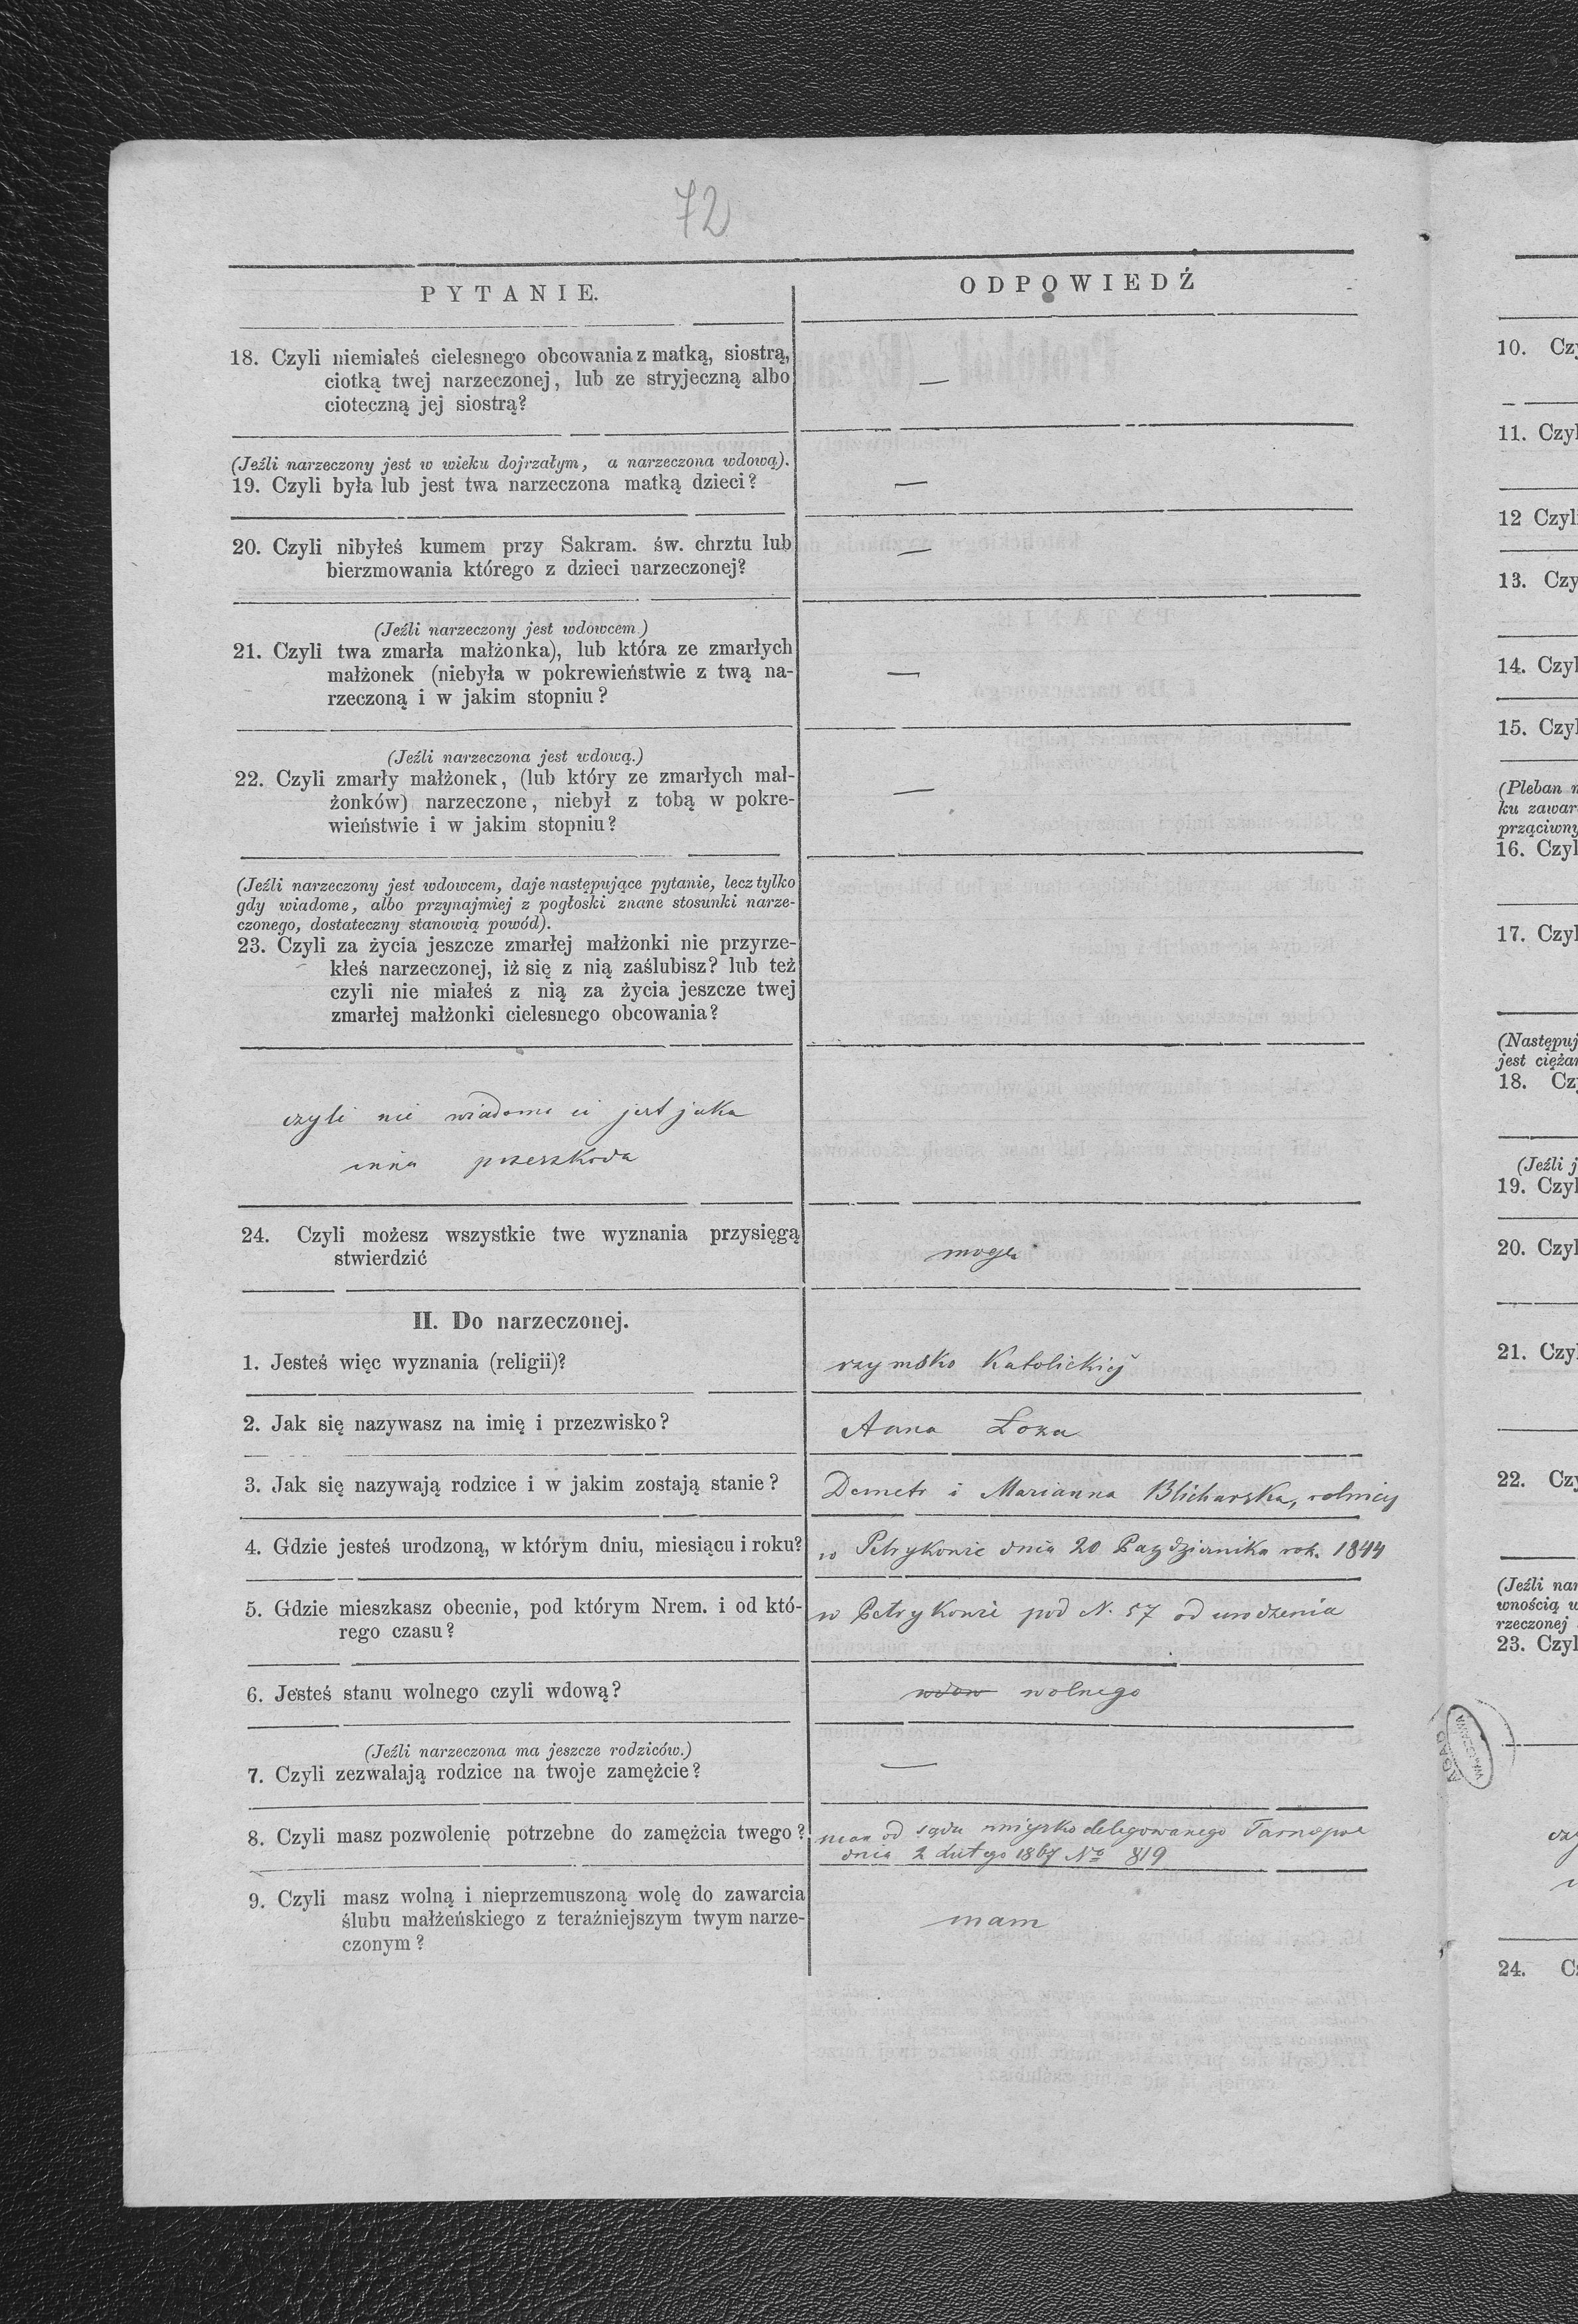 72
PYTANIE.
ODPOWIEDŹ
18. Czyli niemiałeś cielesnego obcowania z matką, siostrą,
ciotką twej narzeczonej, lub ze stryjeczną albo
cioteczną jej siostrą?
—
(Jeźli narzeczony jest w wieku dojrzałym, a narzeczona wdową).
19. Czyli była lub jest twa narzeczona matką dzieci?
—
20. Czyli nibyłeś kumem przy Sakram. św. chrztu lub
bierzmowania którego z dzieci narzeczonej?
—
(Jeźli narzeczony jest wdowcem.)
21. Czyli twa zmarła małżonka), lub która ze zmarłych
małżonek (niebyła w pokrewieństwie z twą na-
rzeczoną i w jakim stopniu?
—
(Jeźli narzeczona jest wdową.)
22. Czyli zmarły małżonek, (lub który ze zmarłych mał-
żonków) narzeczone, niebył z tobą w pokre-
wieństwie i w jakim stopniu?
—
(Jeźli narzeczony jest wdowcem, daje następujące pytanie, lecz tylko
gdy wiadome, albo przynajmiej z pogłoski znane stosunki narze-
czonego, dostateczny stanowią powód).
23. Czyli za życia jeszcze zmarłej małżonki nie przyrze-
kłeś narzeczonej, iż się z nią zaślubisz? lub też
czyli nie miałeś z nią za życia jeszcze twej
zmarłej małżonki cielesnego obcowania?
czyli nie wiadomo ci jest jaka
inna przeszkoda
24. Czyli możesz wszystkie twe wyznania przysięgą
stwierdzić
mogę
II. Do narzeczonej.
1. Jesteś więc wyznania (religii)?
rzymsko Katolickiej
2. Jak się nazywasz na imię i przezwisko?
Anna Łoza
3. Jak się nazywają rodzice i w jakim zostają stanie?
Demetr i Marianna Blicharska, rolnicy
4. Gdzie jesteś urodzoną, w którym dniu, miesiącu i roku?
w Petrykowie dnia 20 Października rok. 1844
5. Gdzie mieszkasz obecnie, pod którym Nrem. i od któ-
rego czasu?
w Petrykowie pod N. 57 od urodzenia
6. Jesteś stanu wolnego czyli wdową?
wdow wolnego
(Jeźli narzeczona ma jeszcze rodziców.)
7. Czyli zezwalają rodzice na twoje zamężcie?
—
8. Czyli masz pozwolenię potrzebne do zamężcia twego?
mam od sądu miejsko delegowanego Tarnopol
dnia 2 Lutego 1867 No 819
9. Czyli masz wolną i nieprzemuszoną wolę do zawarcia
ślubu małżeńskiego z teraźniejszym twym narze-
czonym?
mam
10. Cz
11. Czyl
12 Czyli
13. Czy
14. Czyl
15. Czyl
(Pleban
ku zawar
prząciwny
16. Czyl
17. Czyl
(Następuj
jest cięża
18. Cz
(Jeźli j
19. Czyl
20. Czyl
21. Czyl
22. Czy
(Jeźli nar
wnością w
rzeczonej
23. Czyl
AGAD
WARSZAWA
24. C